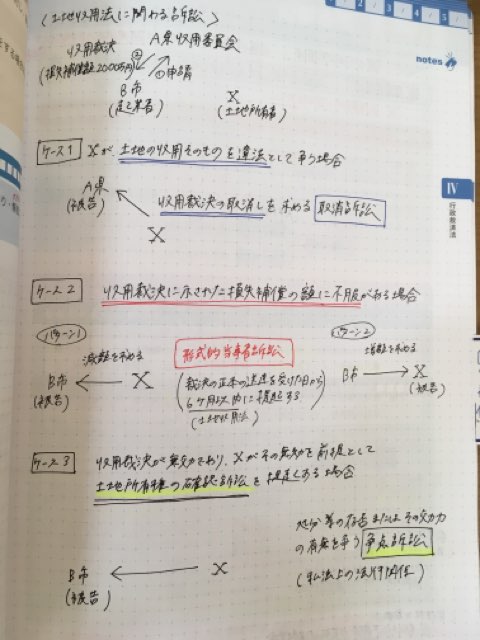 (土地収用法に関わる訴訟)
収用裁決
A県収用委員会
(損失補償額2000万円)
②
①申請
B市
(起業者)
X
(土地所有者)
notes
ケース1
Xが、土地の収用そのものを違法として争う場合
A県
(被告)
収用裁決の取消しを求める 取消訴訟
X
IV
行政救済法
ケース2
収用裁決に示された損失補償の額に不服がある場合
パターン1
形式的当事者訴訟
パターン2
減額を求める
増額を求める
B市
(被告)
X
(裁決の正本の送達を受けた日から
6ケ月以内に提起する
(土地収用法)
B市
X
(被告)
ケース3
収用裁決が無効であり、Xがその無効を前提として
土地所有権の確認訴訟を提起する場合
処分等の存否またはその効力
の有無を争う 争点訴訟
(私法上の法律関係)
B市
(被告)
X